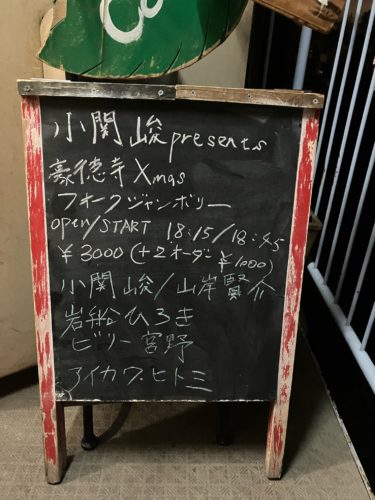 小関峻presents
豪徳寺Xmas
フォークジャンボリー
open/START 18:15/18:45
¥3000(+2オーダー¥1000)
小関峻/山岸賢介
岩船ひろき
ビリー宮野
アイカワヒトミ